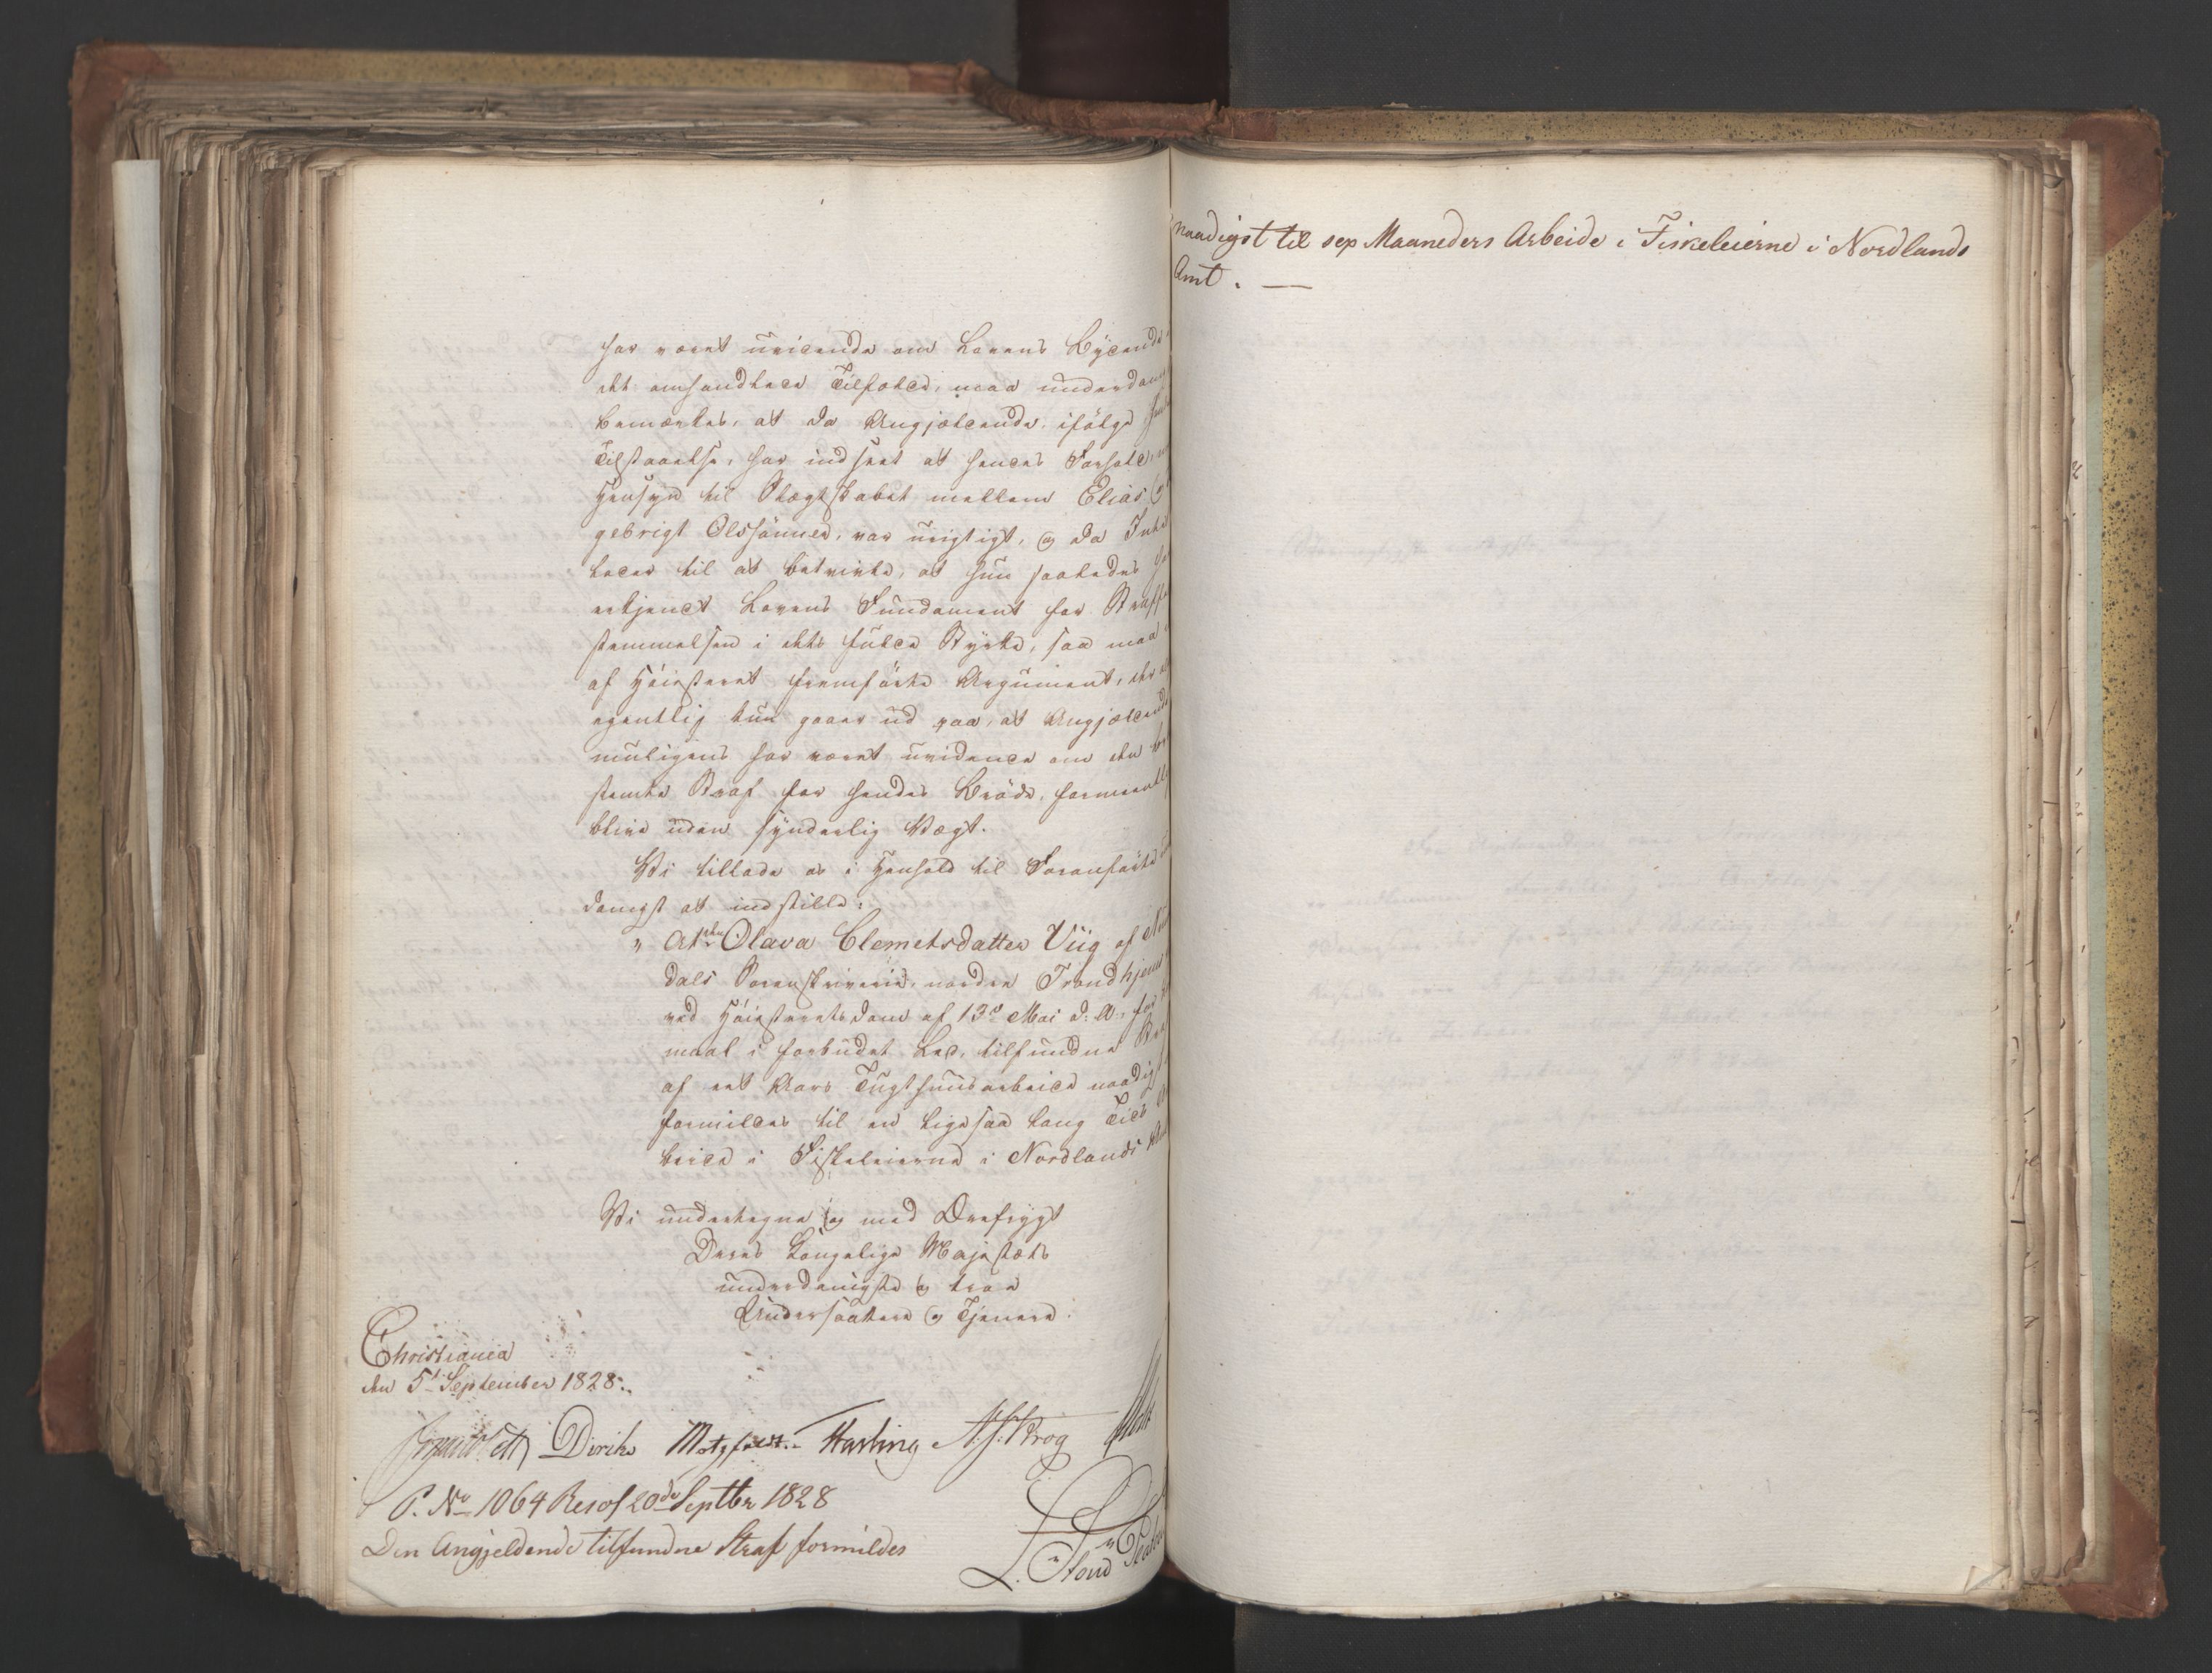 har været uvidende om Lovens Bydende
det omhandlede Tilfælde, maa underdan
bemærkes, at da Angjældende, ifølge
Tilstaaelse, har indseet at hendes Forhold,
Hensyn til Slægtskabet mellem Elias og
gebrigt Olssønner, var urigtigt, og da Intet
leder til at bestyrke, at hun saaledes
erkjendt Lovens Fundament for Straffe
stemmelsen i dets fulde Styrke, saa maa
af Høiesteret fremførte Argument, der
egentlig kun gaaer ud paa, at Angjældende
muligens har været uvidende om den be
stemte Straf for hendes Brøde, formeentl
blive uden synderlig Vægt.
Vi tillade os i Henhold til Foranførte
danigst at indstille:
" At den Olava Clemetsdatter Viig af Num
dals Sorenskriverie, nordre Trondhjems
ved Høiesteretsdom af 13de Mai d: A:, for
maal i forbudet Led, tilfundne Straf
af eet Aars Tugthuusarbeide naadigst
formildes til en ligesaa lang Tids Ar
beide i Fiskeleierne i Nordlands Amt
Vi undertegne os med Ærefrygt
Deres Kongelige Majestæts
underdanigste og troe
Undersaattere og Tjenere.
Christiania
den 5t September 1828.
Diriks Motzfeldt. Harbing N. J. Krog Holst
P. No 1064 Resol 20de Septbr 1828
Den Angjeldende tilfundne Straf formildes
L. Stoud Platou
naadigst til sex Maaneders Arbeide i Fiskeleierne i Nordlands
Amt. —